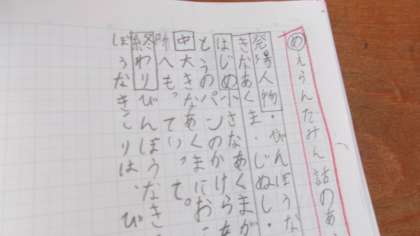 めえらんだみん話のあ
登場人物・びんぼうな
きなあくま・じぬし・
はじめ小さなあくまが
とうのパンのかけらを
中大きなあくまにおこ
所へもどっていって。
終わりびんぼうなき
ぼうなきこりは、び